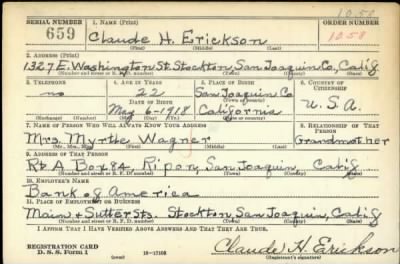 SERIAL NUMBER
1. NAME (Print)
ORDER NUMBER
1050
659
Claude H. Erickson
1058
(First) (Middle) (Last)
2. ADDRESS (Print)
1327 E. Washington St. Stockton, San Joaquin Co, Calif
(Number and street or R. F. D. number) (Town) (County) (State)
3. TELEPHONE
4. AGE IN YEARS
5. PLACE OF BIRTH
6. COUNTRY OF CITIZENSHIP
no
22
San Joaquin Co
DATE OF BIRTH
(Town or county)
May 6-1918
California
U.S.A.
(Exchange) (Number) (Mo.) (Day) (Yr.) (State or country)
7. NAME OF PERSON WHO WILL ALWAYS KNOW YOUR ADDRESS
8. RELATIONSHIP OF THAT PERSON
Mrs. Myrtle Wagner
Grandmother
(Mr., Mrs., Miss) (First) (Middle) (Last)
9. ADDRESS OF THAT PERSON
Rt A Box 84, Ripon, San Joaquin, Calif
(Number and street or R. F. D. number) (Town) (County) (State)
10. EMPLOYER'S NAME
Bank of America
11. PLACE OF EMPLOYMENT OR BUSINESS
Main & Sutter Sts. Stockton, San Joaquin, Calif
(Number and street or R. F. D. number) (Town) (County) (State)
I AFFIRM THAT I HAVE VERIFIED ABOVE ANSWERS AND THAT THEY ARE TRUE.
REGISTRATION CARD
D. S. S. Form 1
16-17105
Claude H. Erickson
(Registrant's signature)